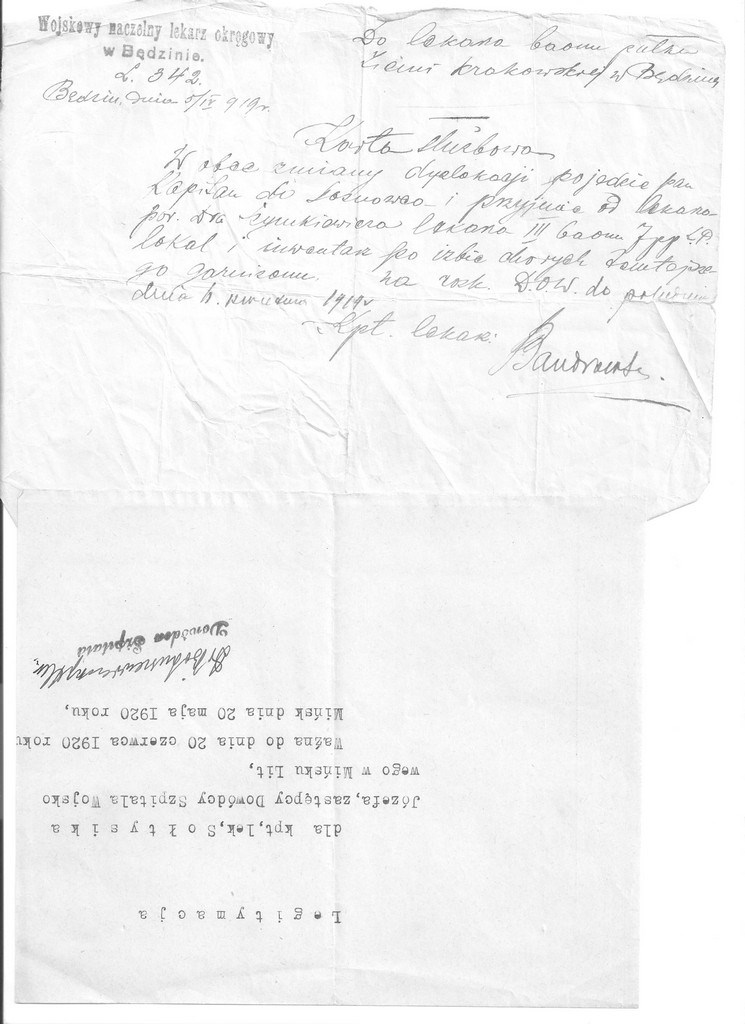 Wojskowy naczelny lekarz okręgowy
w Będzinie.
L. 342.
Będzin, dnia 5/IV 919r.
Do lekarza baonu pułku
Ziemi Krakowskiej w Będzinie
Karta służbowa
W obec zmiany dyslokacji pojedzie pan
Kapitan do Sosnowca i przyjmie od lekarza
por. Dra lekarza III baonu 7pp L.P.
lokal i inwentarz po izbie chorych tamtejsze-
go garnizonu. na rozk. D.O.W. do południa
dnia 6. kwietnia 1919r
Kpt. lekarz
Legitymacja
dla kpt,lek,Sołtysika
Józefa,zastępcy Dowódcy Szpitala Wojsko
wego w Mińsku Lit,
Ważna do dnia 20 czerwca 1920 roku
Mińsk dnia 20 maja 1920 roku,
Dr
Dowódca Szpitala